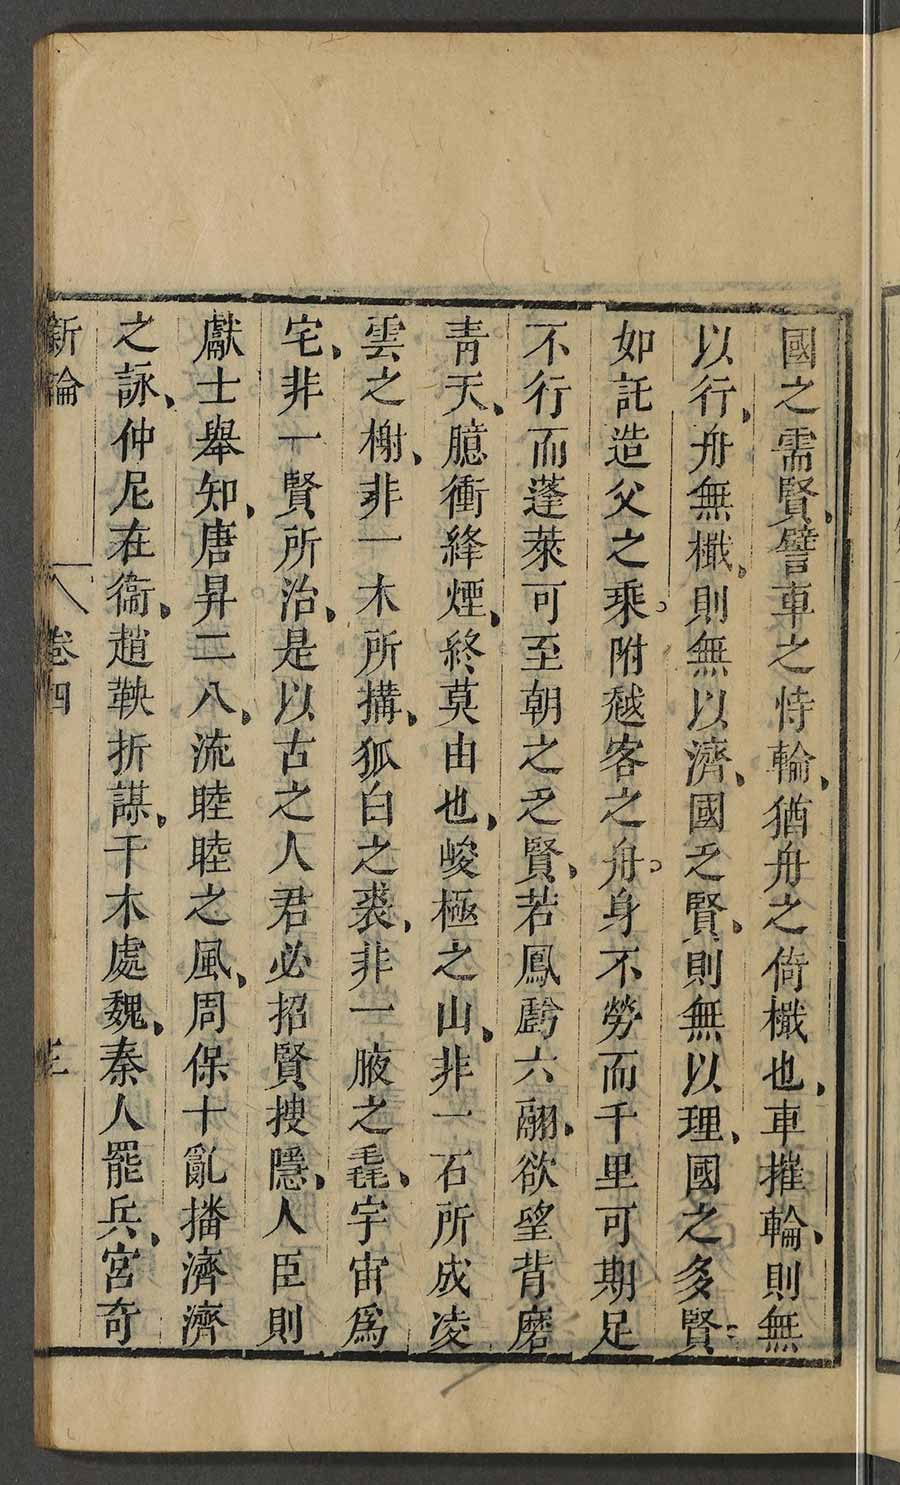 國之需賢、譬車之恃輪、猶舟之倚檝也、車摧輪、則無
以行、舟無檝、則無以濟、國乏賢、則無以理、國之多賢、
如託造父之乘。附越客之舟。身不勞而千里可期足
不行而蓬萊可至朝之乏賢、若鳳虧六翮、欲望背磨
青天、臆衝絳煙、終莫由也、峻極之山、非一石所成凌
雲之榭、非一木所搆、狐白之裘、非一腋之毳、宇宙爲
宅、非一賢所治、是以古之人君必招賢搜隱、人臣則
獻士舉知、唐昇二八、流睦睦之風、周保十亂播濟濟
之詠、仲尼在衞、趙鞅折謀、干木處魏、秦人罷兵、宮奇
新論 卷四